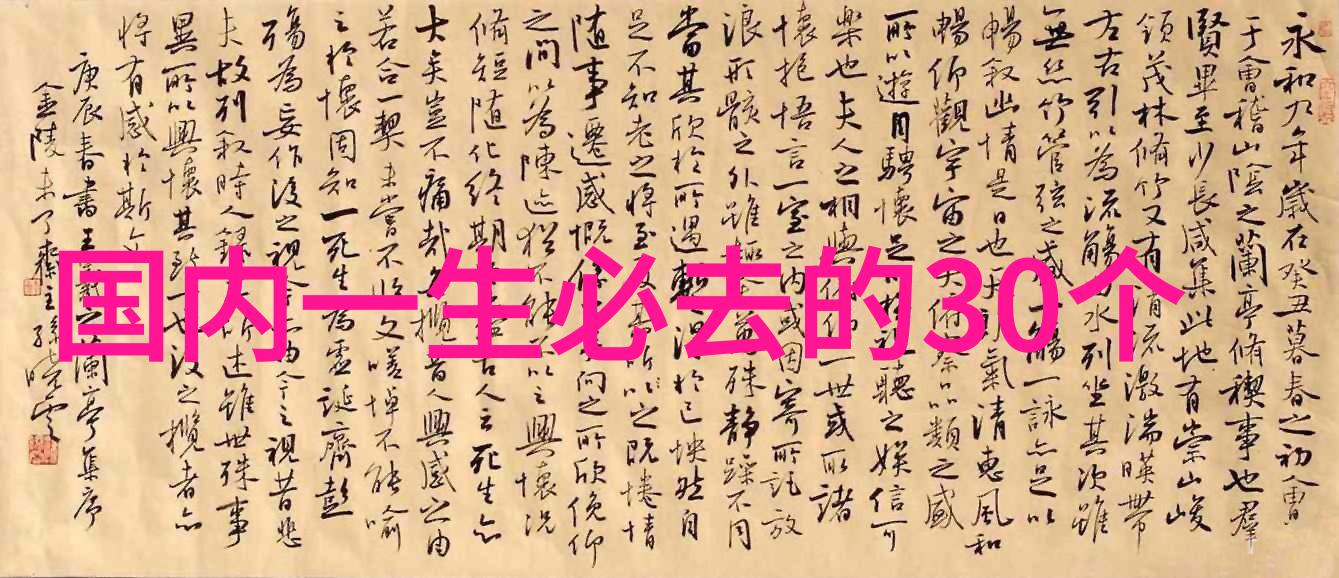 国内一生必去的30个
永和九年歲在癸丑暮春之初會
于會稽山陰之蘭亭脩禊事也群
賢畢至少長咸集此地有崇山峻
領茂林脩竹又有清流激湍暎帶
左右引以為流觴曲水列坐其次雖
無絲竹管弦之盛一觴一詠亦足以
暢敘幽情是日也天朗氣清惠風和
暢仰觀宇宙之大俯察品類之盛
所以遊目騁懷足以極視聽之娛信可
樂也夫人之相與俯仰一世或取諸
懷抱悟言一室之內或因寄所託放
浪形骸之外雖趣舍萬殊靜躁不同
當其欣於所遇暫得於己怏然自
足不知老之將至及其所之既惓情
隨事遷感慨係之矣向之所欣俛仰
之間以為陳迹猶不能不以之興懷況
脩短隨化終期於盡古人云死生亦
大矣豈不痛哉每攬昔人興感之由
若合一契未嘗不臨文嗟悼不能喻
之於懷固知一死生為虛誕齊彭
殤為妄作後之視今亦由今之視昔悲
夫故列敘時人錄其所述雖世殊事
異所以興懷其致一也後之攬者亦
將有感於斯文
庚辰春書王羲之蘭亭集序
金陵未了齋主孫曉雲